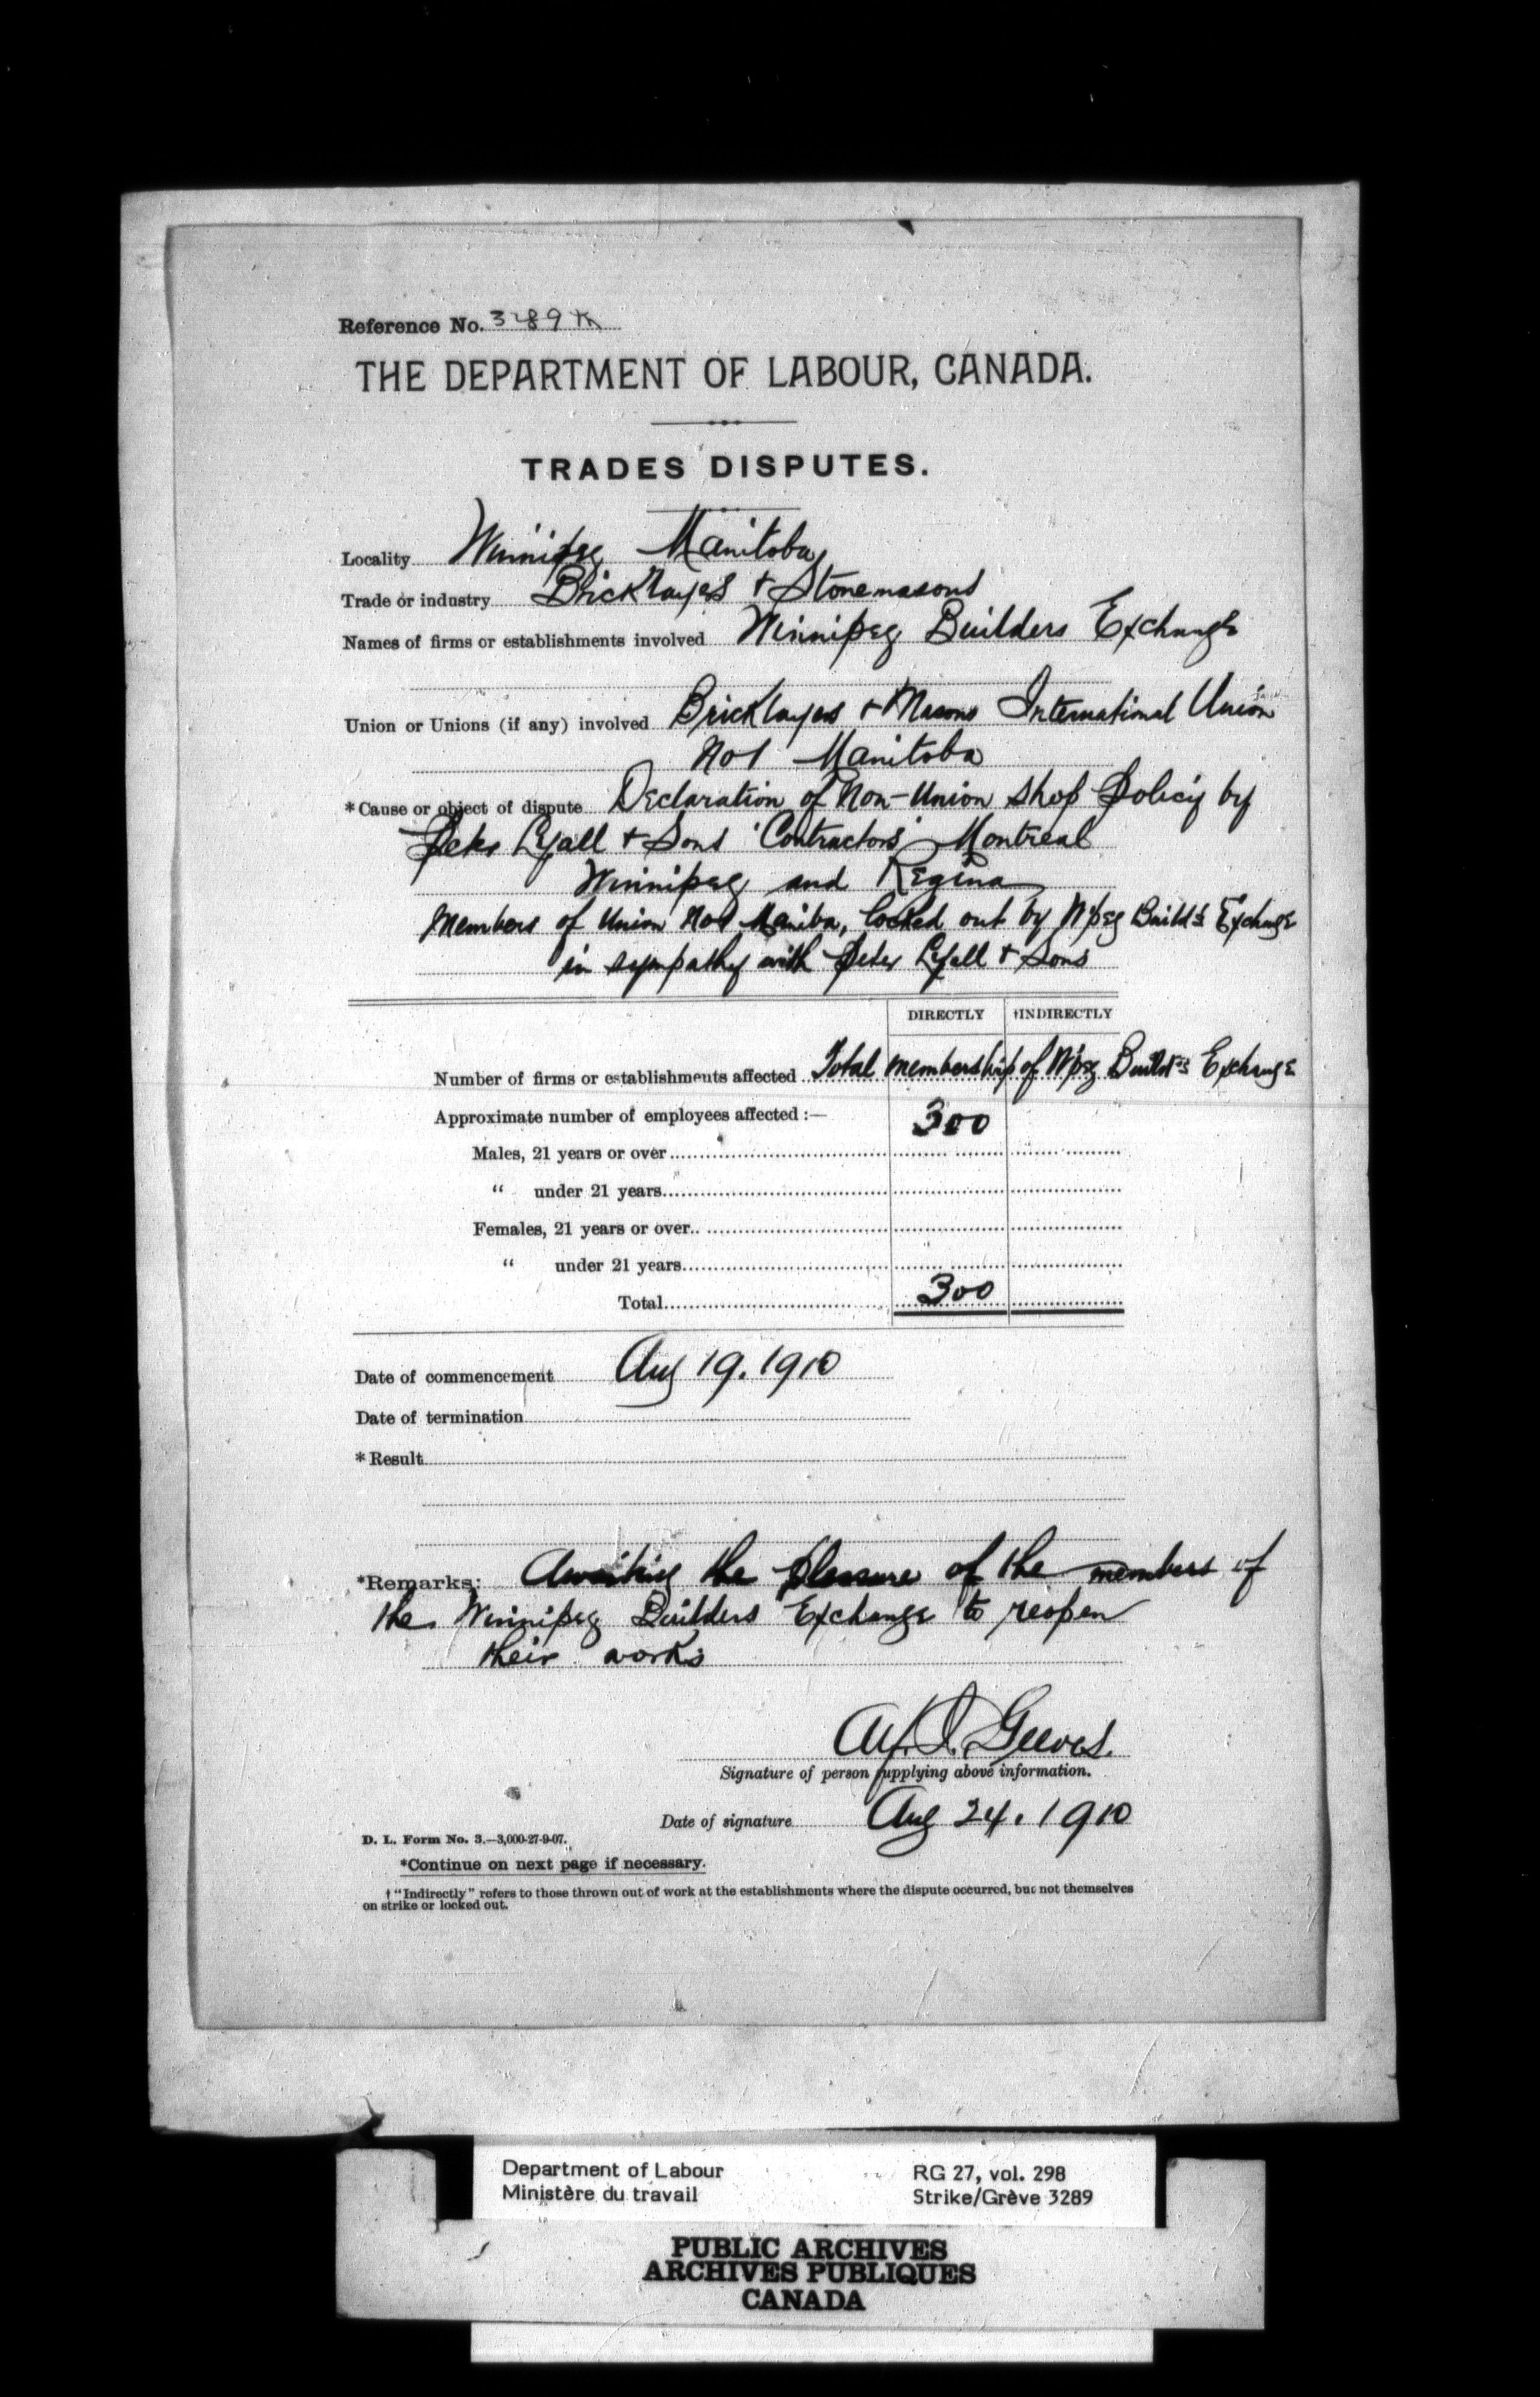 Reference No. 3289
THE DEPARTMENT OF LABOUR, CANADA.
TRADES DISPUTES.
Locality Winnipeg Manitoba
Trade or industry Bricklayers + Stonemasons
Names of firms or establishments involved Winnipeg Builders Exchange
Union or Unions (if any) involved Bricklayers + Masons International Union
No 1 Manitoba
*Cause or object of dispute Declaration of Non-Union Shop Policy by
Peter Lyall + Sons 'Contractors' Montreal
Winnipeg and Regina
Members of Union No 1 Manitba, locked out by W'peg Build's Exchange
in sympathy with Peter Lyall + Sons
DIRECTLY †INDIRECTLY
Number of firms or establishments affected Total membership of W'peg Build'rs Exchange
Approximate number of employees affected :— 300
Males, 21 years or over
“ under 21 years
Females, 21 years or over
“ under 21 years
Total 300
Date of commencement Aug 19. 1910
Date of termination
*Result
*Remarks: Awaiting the pleasure of the members of
the Winnipeg Builders Exchange to reopen
their works
Alf. J. Geeves.
Signature of person supplying above information.
Date of signature Aug 24. 1910
D. L. Form No. 3.—3,000-27-9-07.
*Continue on next page if necessary.
† “Indirectly” refers to those thrown out of work at the establishments where the dispute occurred, but not themselves
on strike or locked out.
Department of Labour RG 27, vol. 298
Ministère du travail Strike/Grève 3289
PUBLIC ARCHIVES
ARCHIVES PUBLIQUES
CANADA